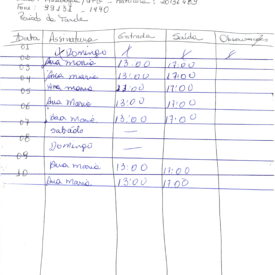 Período da Tarde
Data Assinatura Entrada Saída Observações
01
02 x Domingo x x x
03 Ana Maria 13:00 17:00
04 Ana Maria 13:00 17:00
05 Ana Maria 13:00 17:00
06 Ana Maria 13:00 17:00
07 Ana Maria 13:00 17:00
sabádo —
08
Domingo —
09
Ana Maria 13:00 17:00
10 Ana Maria 13:00 17:00